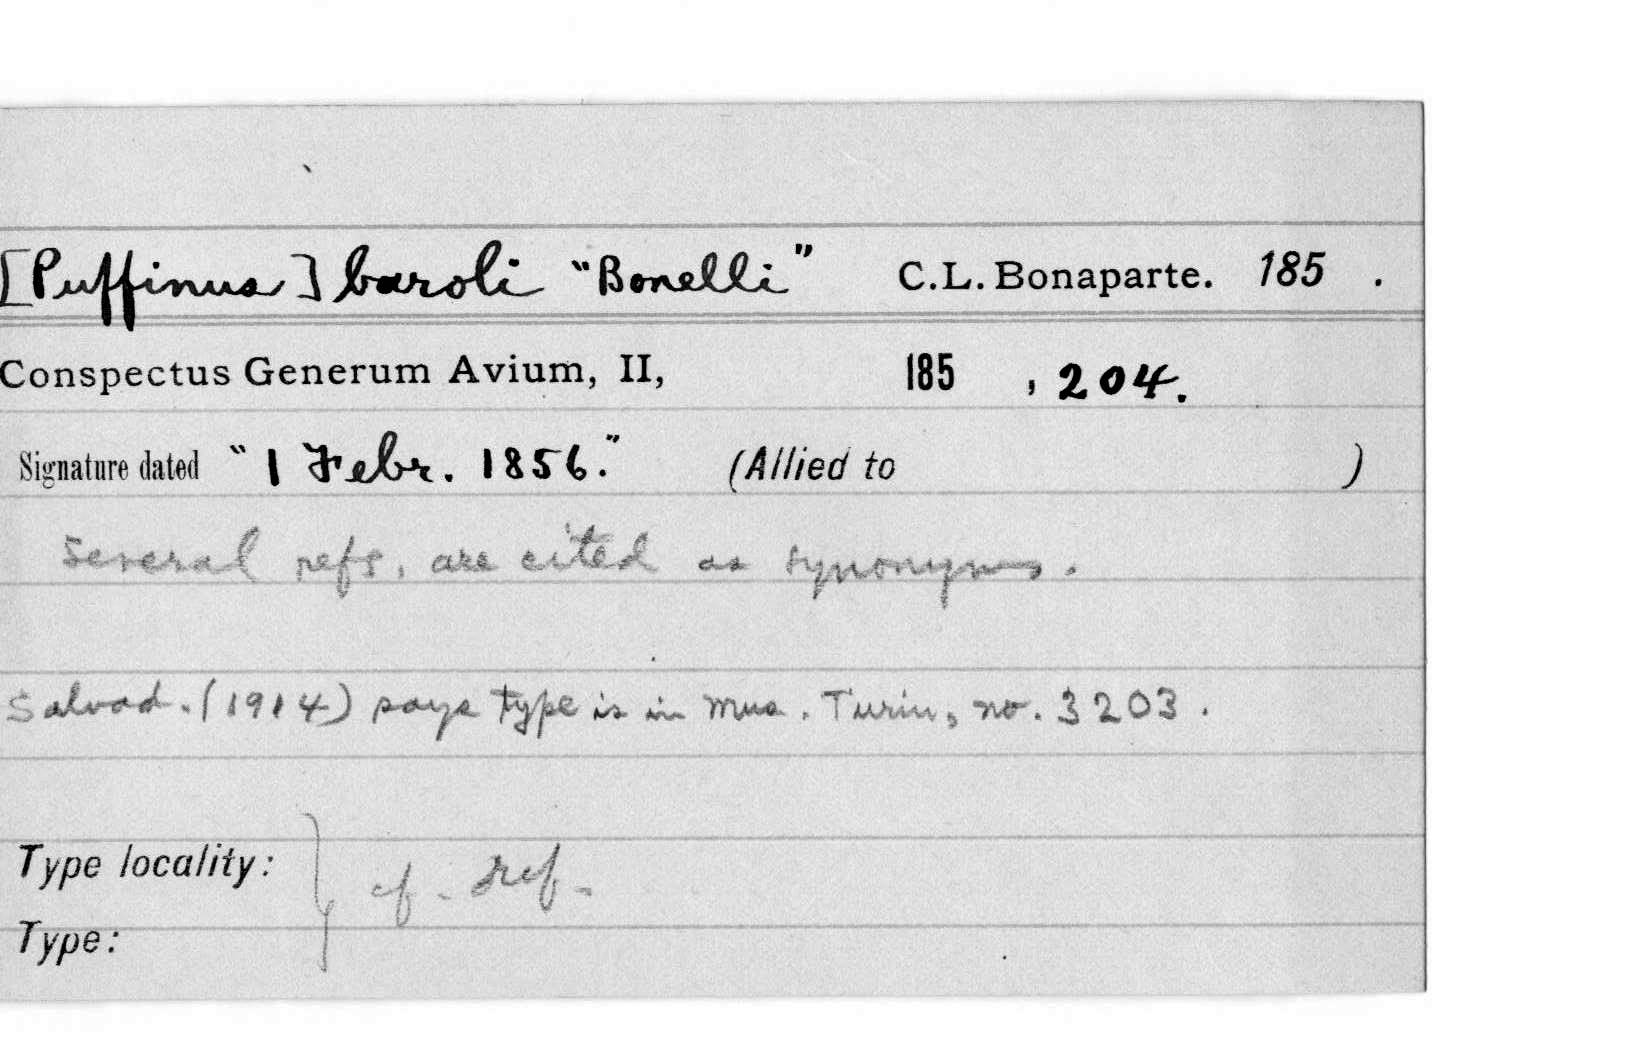 [Puffinus] baroli "Bonelli" C.L. Bonaparte. 185 .
Conspectus Generum Avium, II, 185 , 204.
Signature dated "1 Febr. 1856." (Allied to )
Several refs. are cited as synonyms.
Salvad. (1914) says type is in Mus. Turin, no. 3203.
Type locality: } cf. ref.
Type: